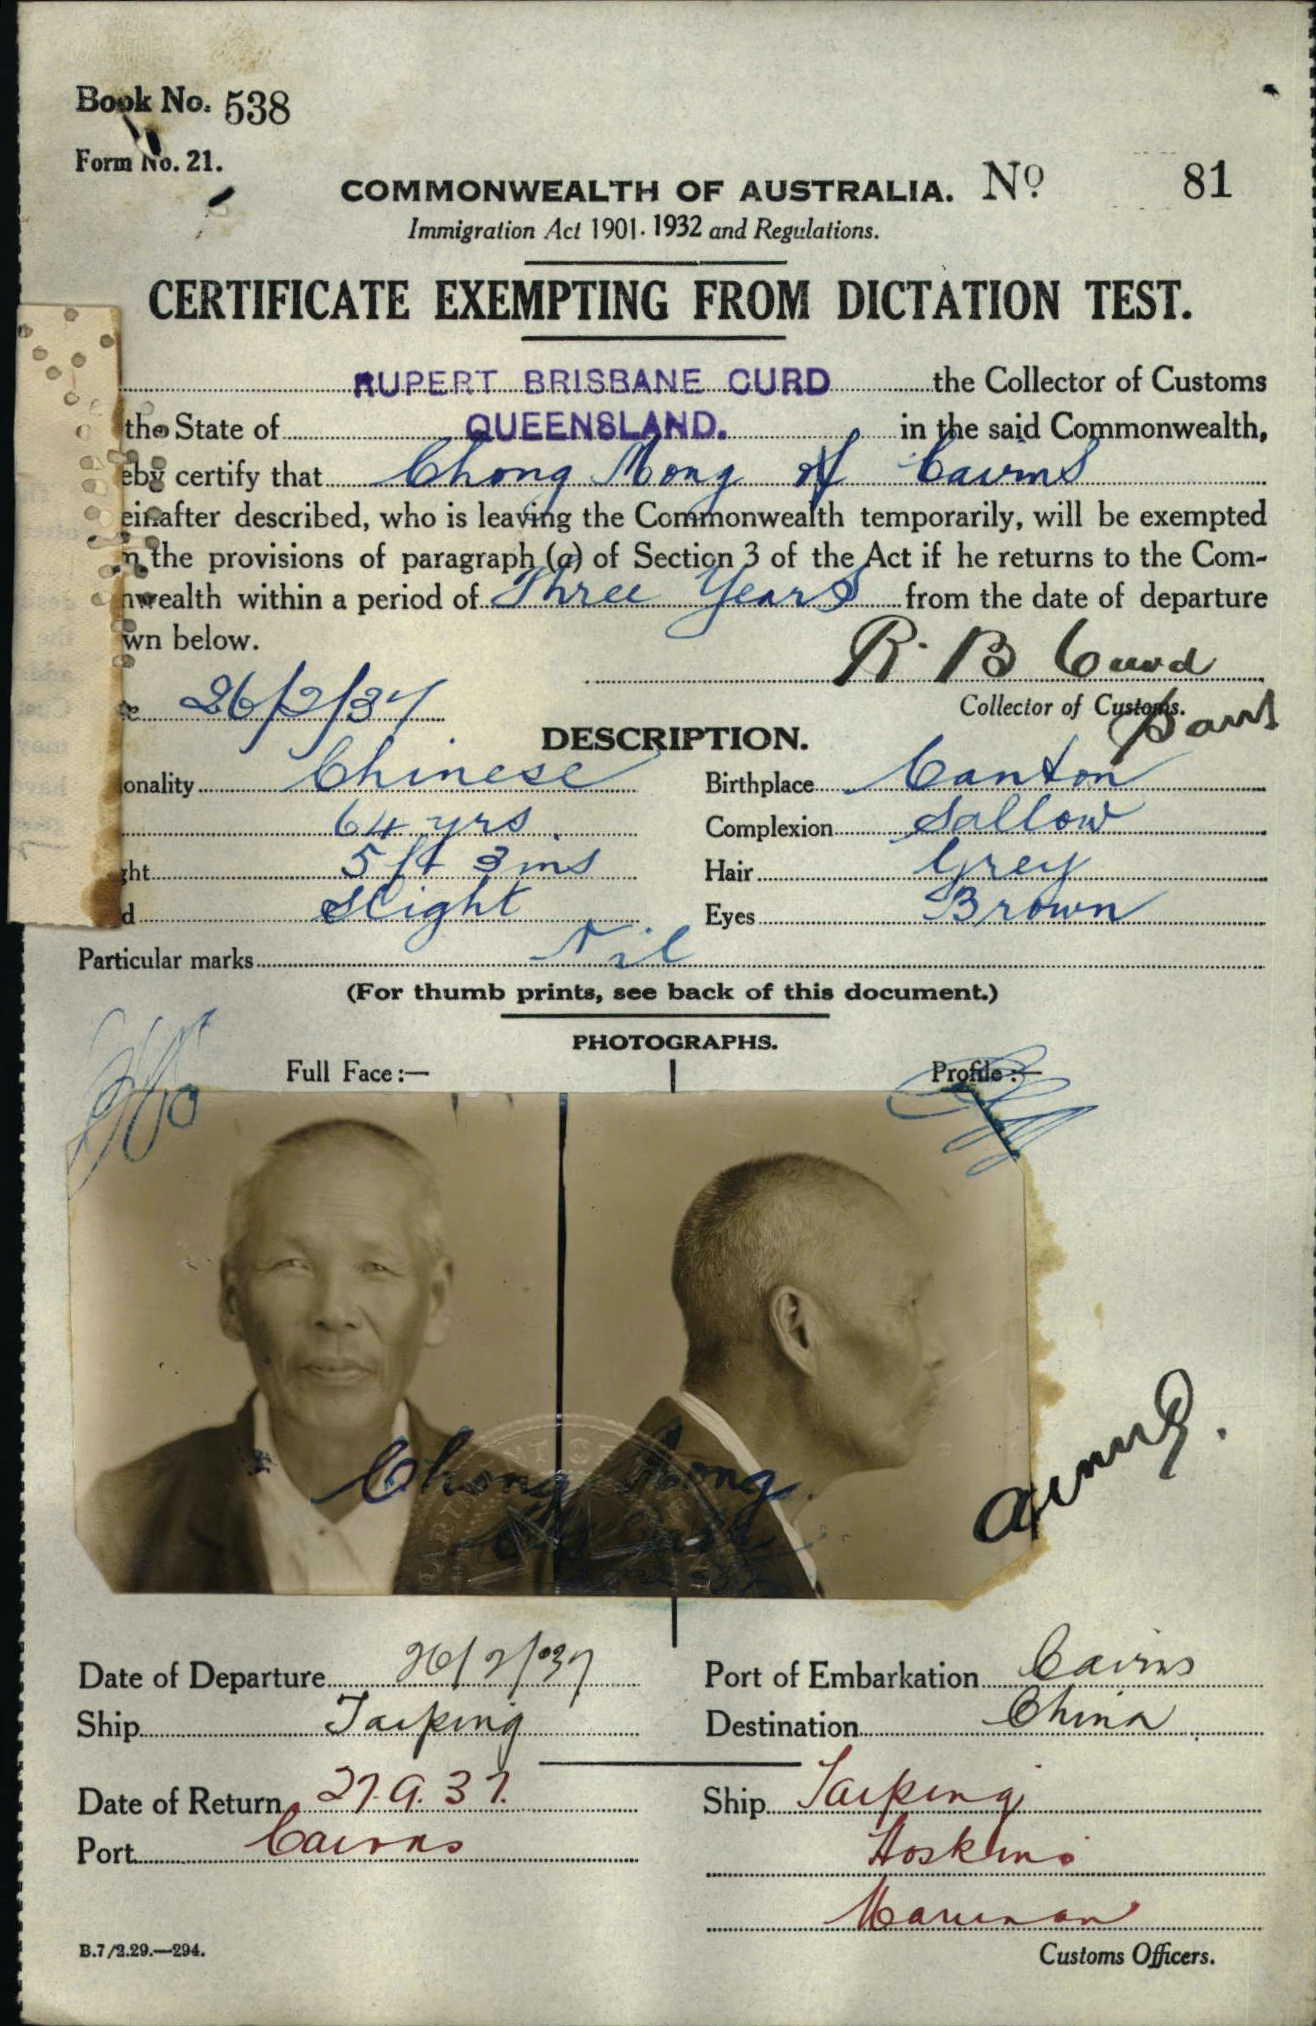 Book No. 538
Form No. 21.
COMMONWEALTH OF AUSTRALIA. Nº 81
Immigration Act 1901-1932 and Regulations.
CERTIFICATE EXEMPTING FROM DICTATION TEST.
RUPERT BRISBANE CURD the Collector of Customs
the State of QUEENSLAND. in the said Commonwealth,
eby certify that Chong Mong of Cairns
einafter described, who is leaving the Commonwealth temporarily, will be exempted
the provisions of paragraph (a) of Section 3 of the Act if he returns to the Com-
nwealth within a period of Three Years from the date of departure
wn below.
R. B Curd
26/2/37
Collector of Customs.
DESCRIPTION.
onality Chinese Birthplace Canton
64 yrs. Complexion Sallow
ght 5 ft 3 ins Hair Grey
d Slight Eyes Brown
Particular marks Nil
(For thumb prints, see back of this document.)
PHOTOGRAPHS.
Full Face:— Profile:—
Chong Mong
Date of Departure 26/2/37 Port of Embarkation Cairns
Ship Taiping Destination China
Date of Return 27.9.37. Ship Taiping
Port Cairns Hoskins
B.7/2.29.—294.
Customs Officers.